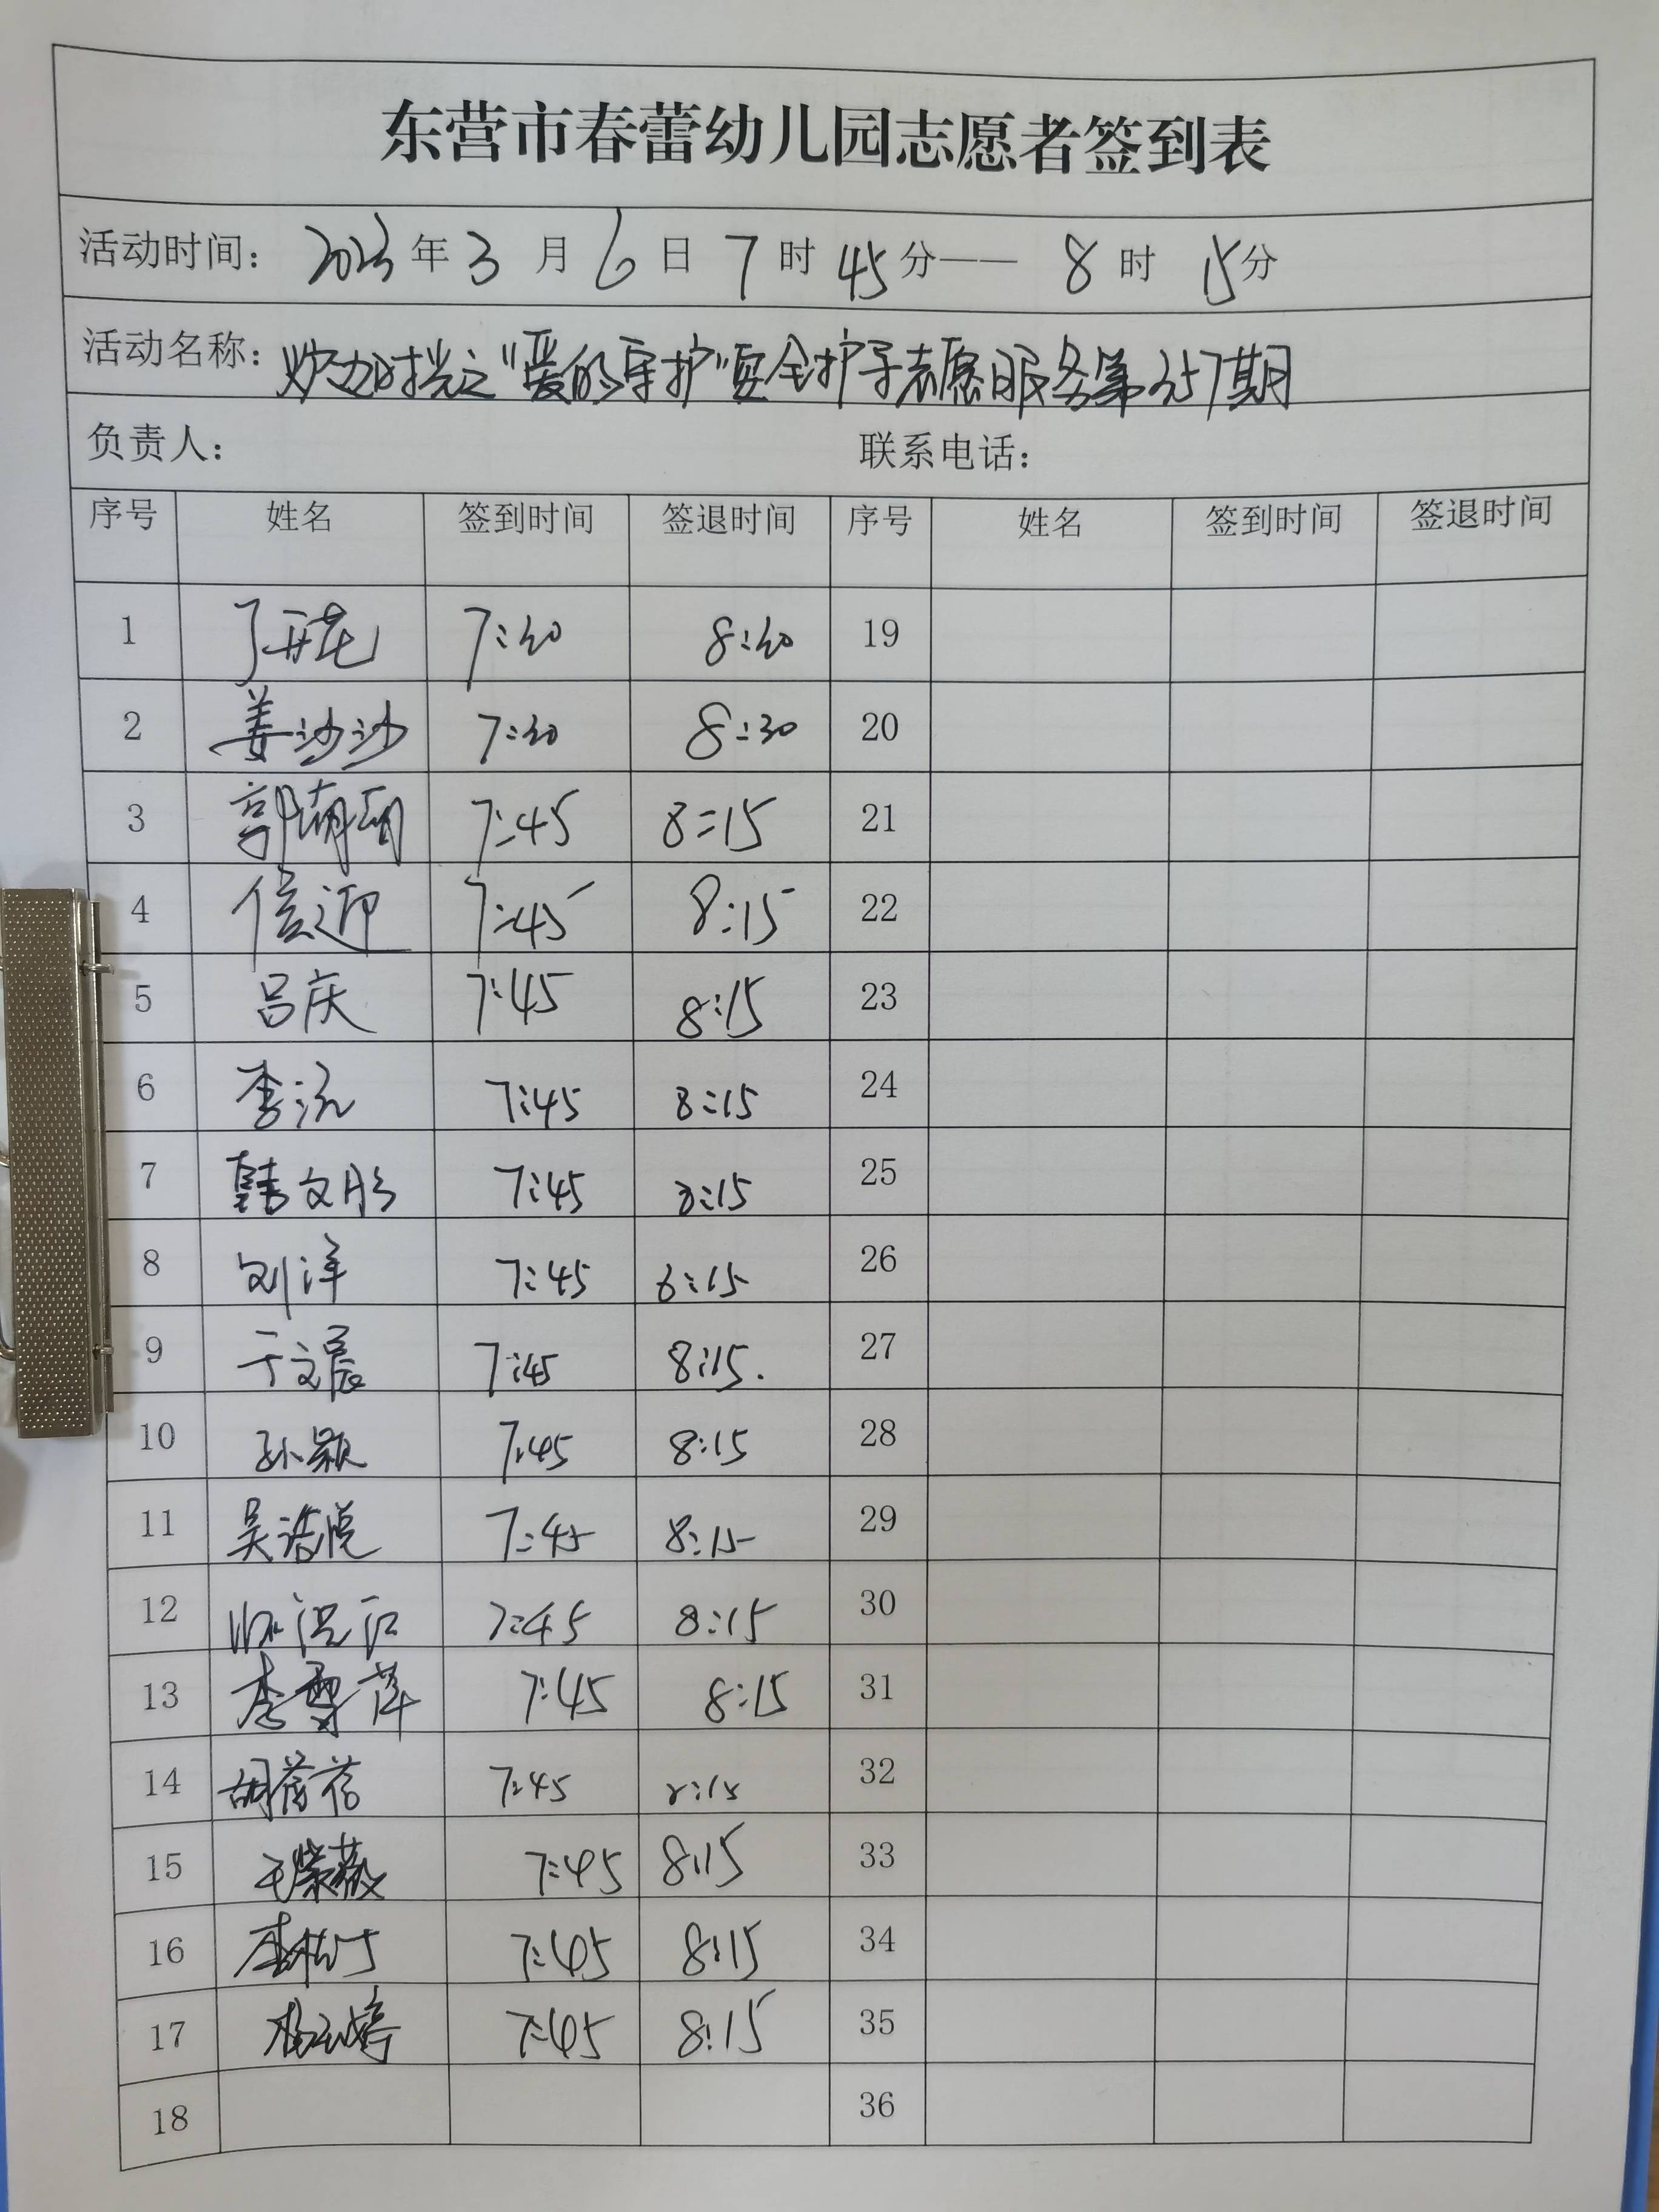 东营市春蕾幼儿园志愿者签到表
活动时间： 2023 年 3 月 6 日 7 时 45 分—— 8 时 15 分
活动名称： 时光之“爱的守护”安全护导志愿服务第357期
负责人： 联系电话：
序号 姓名 签到时间 签退时间 序号 姓名 签到时间 签退时间
1 丁开花 7:30 8:30 19
2 姜沙沙 7:30 8:30 20
3 郭萌萌 7:45 8:15 21
4 信迎 7:45 8:15 22
5 吕庆 7:45 8:15 23
6 李沅 7:45 8:15 24
7 韩文彤 7:45 8:15 25
8 刘洋 7:45 8:15 26
9 于文晨 7:45 8:15. 27
10 孙颖 7:45 8:15 28
11 吴浩悦 7:45 8:15 29
12 7:45 8:15 30
13 李雪萍 7:45 8:15 31
14 胡蓓蓓 7:45 8:15 32
15 毛紫薇 7:45 8:15 33
16 7:45 8:15 34
17 杨云婷 7:45 8:15 35
18 36